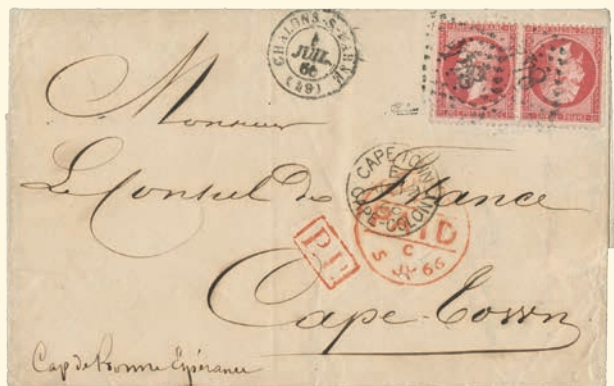 CHALONS-S-MARNE
JUIL.
66
(49)
Monsieur
Le Consul de France
CAPE TOWN
CAPE-COLONY
PAID
C
5 JY 66
P.F.
Cape-Town
Cap de Bonne Espérance